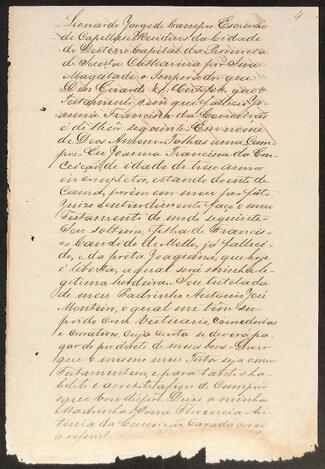 4
Leonardo Jorge de Campos Escrivão
de Capellas e Residuos da Cidade
do Desterro Capital da Provincia
de Santa Catharina por Sua
Magestade o Imperador que
Deus Guarde &. Certifico que o
Testamento com que falleceu Jo-
anna Francisca da Conceicão
é do theor seguinte. Em nome
de Deos Amem. Folhas uma Cam-
pos. Eu Joanna Francisca da Con-
ceicão, de idade de treze annos
incompletos, estando doente de
Cama, porém em meu perfeito
Juizo e entendimento faço o meu
Testamento do modo seguinte.
Sou solteira, filha de Francis-
co Candido de Mello, já falleci-
do, e da preta Joaquina, que hoje
é liberta, a qual será minha le-
gitima herdeira. Sou tutelada
de meu Padrinho Antonio José
Monteiro, o qual me têm sup-
prido com Vestuario, comedorias
e curativo, cuja conta se deverá pa-
gar do producto de meus bens. Quero
que o mesmo meu Tutor seja o meu
Testamenteiro, e para tanto o ha-
bilito e
o que vou dispôr. Deixo a minha
Madrinha Dona Florencia An-
tonia da Conceicão, Cazada com
o referido